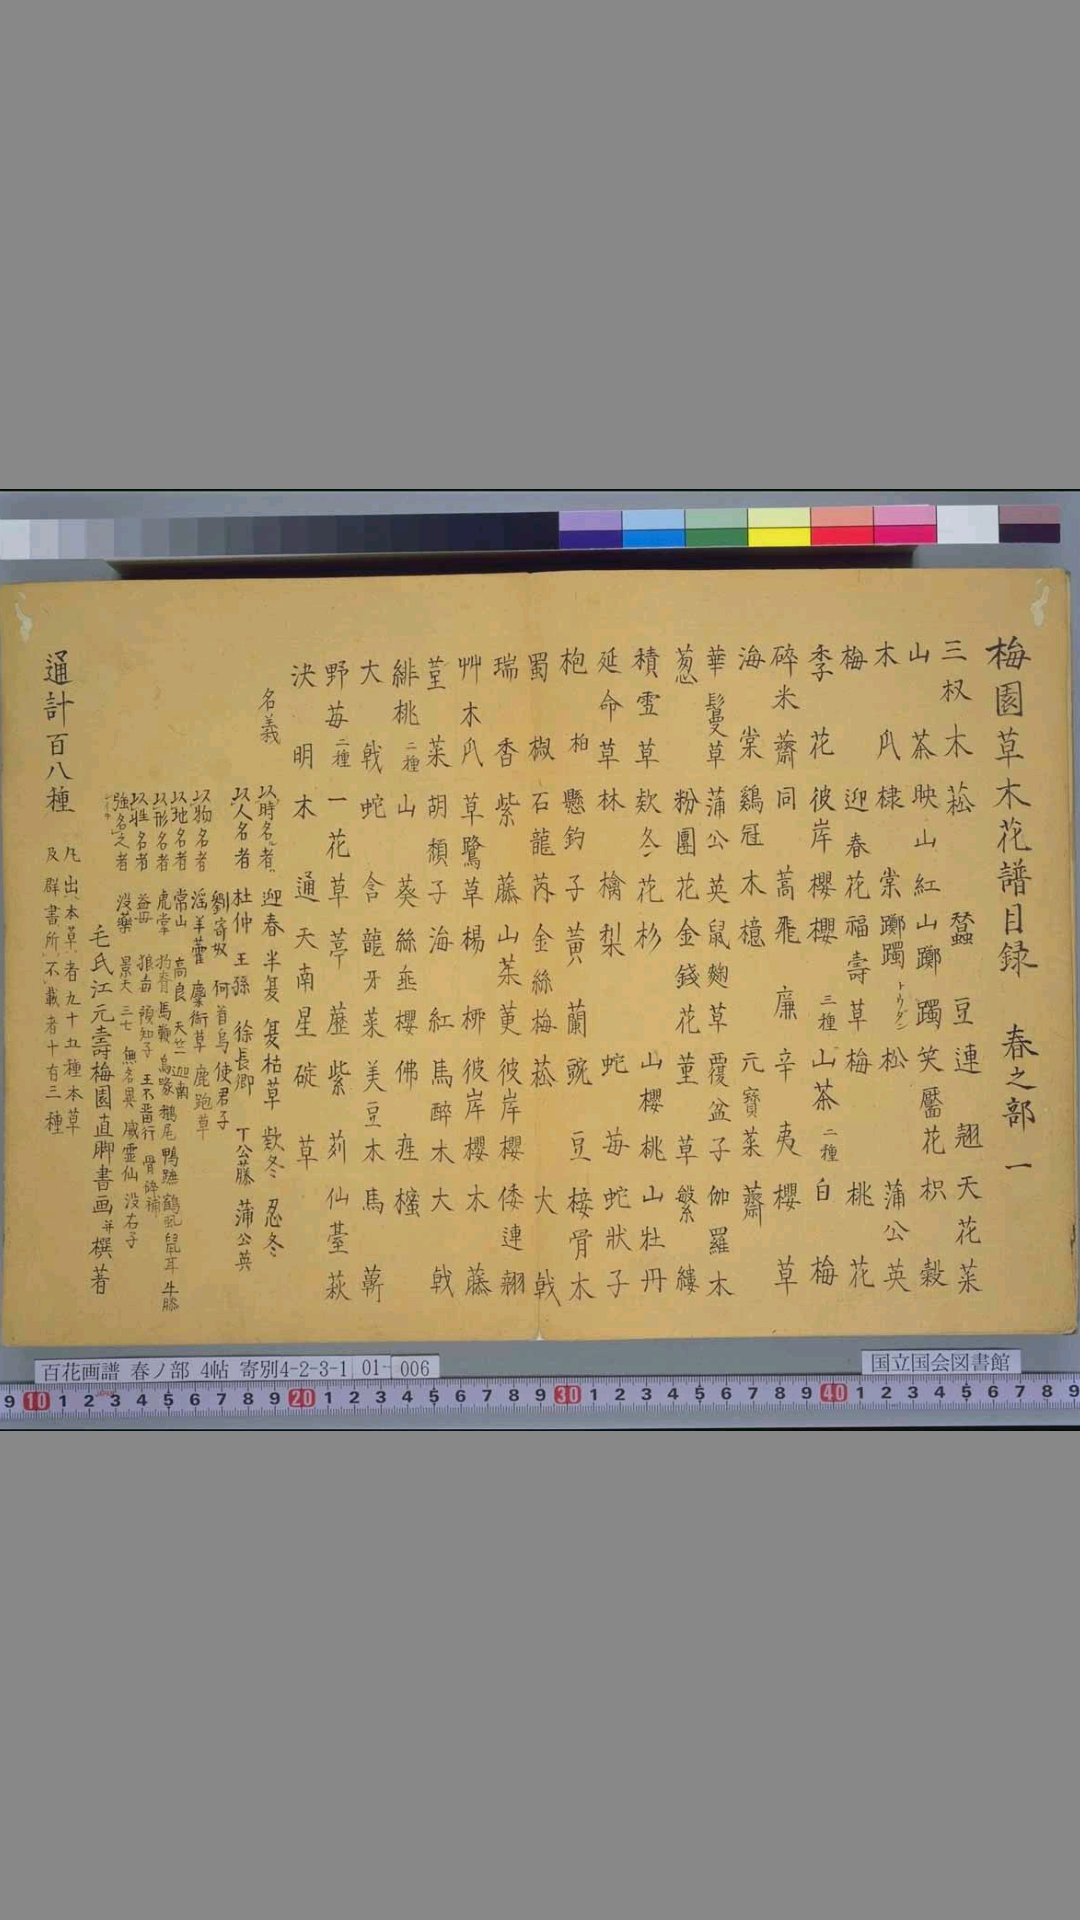 梅園草木花譜目録 春之部 一
三杈木菘 蠶豆連翹天花菜
山茶映山紅山躑躅笑靨花枳殼
木瓜棣棠躑躅トウダン松 蒲公英
梅 迎春花福壽草梅 桃花
李花彼岸櫻櫻三種山茶二種白梅
碎米薺同蒿飛廉辛夷櫻草
海棠鷄冠木檍 元寳菜薺
華鬘草蒲公英鼠麹草覆盆子伽羅木
葱 粉團花金錢花菫草繁縷
積雪草欵冬花杉 山櫻桃山牡丹
延命草林檎梨 蛇苺蛇狀子
枹 柏懸鈎子黃蘭豌豆椄骨木
蜀椒石龍芮金絲梅菘 大戟
瑞香紫藤山茱萸彼岸櫻倭連翹
艸木瓜草鷺草楊櫛彼岸櫻木藤
菫菜胡頽子海紅馬醉木大戟
緋桃二種山葵絲垂櫻佛座櫁
大戟蛇含龍牙菜美豆木馬蘄
野苺二種一花草葶藶紫 仙臺萩
決明木通天南星碇草
名義
以時名者 迎春 半夏 夏枯草 欵冬 忍冬
以人名者 杜仲 王孫 徐長卿 丁公藤 蒲公英
劉寄奴 何首烏 使君子
以物名者 淫羊藿 麋銜草 鹿跑草
以地名者 常山 高良 天竺 迦南
以形名者 虎掌 狗脊 馬鞭 烏喙 鵝尾 鴨跖 鶴虱 鼠耳 牛膝
以性名者 益母 狼毒 預知子 王不畱行 骨碎補
強名之者 沒藥 景天 三七 無名異 威靈仙 没石子
毛氏江元壽梅園直脚書画并撰著
通計百八種 凡出本草者九十五種本草
及群書所不載者十有三種
百花画譜 春ノ部 4帖 寄別4-2-3-1 01- 006
国立国会図書館
9 10 1 2 3 4 5 6 7 8 9 20 1 2 3 4 5 6 7 8 9 30 1 2 3 4 5 6 7 8 9 40 1 2 3 4 5 6 7 8 9